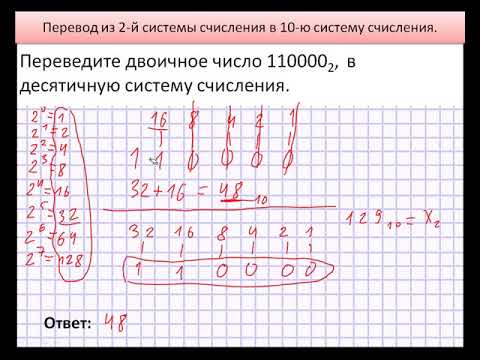 Перевод из 2-й системы счисления в 10-ю систему счисления.
Переведите двоичное число 110000₂, в
десятичную систему счисления.
2⁰=1
2¹=2
2²=4
2³=8
2⁴=16
2⁵=32
2⁶=64
2⁷=128
16 8 4 2 1
1 1 0 0 0 0
32+16=48₁₀
129₁₀=X₂
32 16 8 4 2 1
1 1 0 0 0 0
Ответ: 48